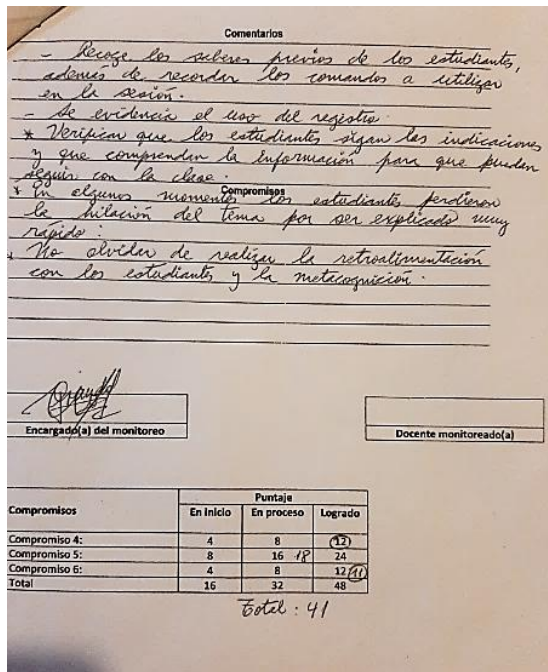 Comentarios
- Recoge los saberes previos de los estudiantes,
además de recordar los comandos a utilizar
en la sesión.
- Se evidencia el uso del registro.
* Verifican que los estudiantes sigan las indicaciones
y que comprendan la información para que puedan
seguir con la clase.
Compromisos
* En algunos momentos los estudiantes perdieron
la hilación del tema por ser explicado muy
rápido.
* No olvidar de realizar la retroalimentación
con los estudiantes y la metacognición.
Encargado(a) del monitoreo
Docente monitoreado(a)
Puntaje
Compromisos En Inicio En proceso Logrado
Compromiso 4: 4 8 12
Compromiso 5: 8 16 18 24
Compromiso 6: 4 8 12 11
Total 16 32 48
Total : 41